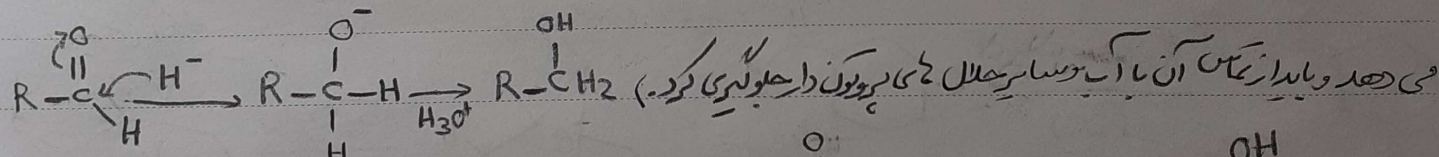 می دهد و باید از تماس آن با آب و سایر حلال های پروتون دار جلوگیری کرد.)
O O⁻ OH
R-C H⁻ → R-C-H → R-CH2
H H H3O⁺
O OH